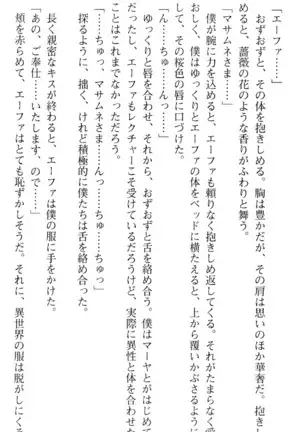 「エーファ……」
　おずおずと、その体を抱きしめる。胸は豊かだが、その肩は思いのほか華奢だ。抱きし
めると、薔薇の花のような香りがふわりと舞う。
「マサムネさま……」
　僕が腕に力を込めると、エーファも頼りなく抱きしめ返してくる。それがたまらなく愛
おしく、僕はゆっくりとエーファの体をベッドに横たえると、上から覆いかぶさるように
して、その桜色の唇に口づけた。
「ん……ちゅっ……」
　ゆっくりと唇を合わせ、それから、おずおずと舌を絡め合う。僕はマーヤとがはじめて
だったし、エーファもレクチャーこそ受けているだろうけど、実際に異性と体を合わせた
ことはこれまでなかっただろう。
「……ちゅっ、マサムネさま……んっ……ちゅっ……んっ……ちゅっ」
　探るように、拙く、けれど積極的に僕たちは舌を絡め合った。
　長く親密なキスが終わると、エーファは僕の服に手をかけた。
「あの、ご奉仕……いたします、ので……」
　頬を赤らめて、エーファはとても恥ずかしそうだ。それに、異世界の服は脱がしにくそ